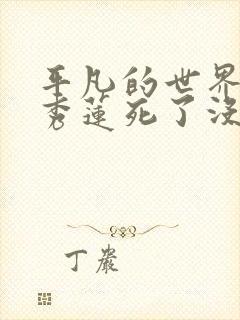 平凡的世界
秀莲死了没
丁岩